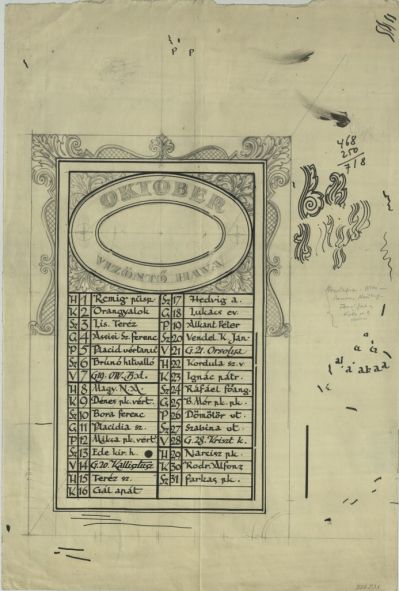 P P
468
250
718
OKTOBER
VIZÖNTŐ HAVA
H 1 Remig püsp.
K 2 Őrangyalok
Sz 3 Lis. Teréz
G 4 Assisi Sz. Ferenc
P 5 Placid vértanú
Sz 6 Brúnó hitvalló
V 7
H 8 Magy. N.A.
K 9 Dénes pk. vért.
Sz 10 Bora ferenc
G 11 Placidia sz.
P 12 Miksa pk. vért.
Sz 13 Ede kir. h.
V 14 G. 20. Kallisztusz
H 15 Teréz sz.
K 16 Gál apát
Sz 17 Hedvig a.
G 18 Lukács ev.
P 19 Alkant. Péter
Sz 20 Vendel. K. Ján.
V 21 G. 21. Orsolya
H 22 Kordula sz. v
K 23 Ignác pátr.
Sz 24 Ráfáel főang.
G 25 B. Mór pk. pk.
P 26 Dömötör vt.
Sz 27 Szabina vt.
V 28 G. 28. Kriszt. k.
H 29 Narcisz pk.
K 30 Rodr. Alfonz
Sz 31 Farkas pk.